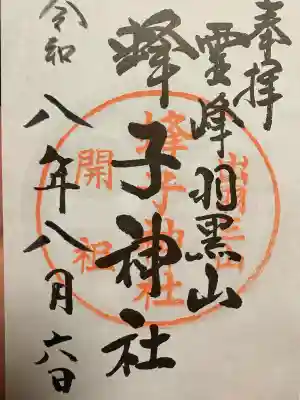 奉拝
霊峰羽黒山
蜂子神社
令和
八年八月六日
開祖
蜂子神社